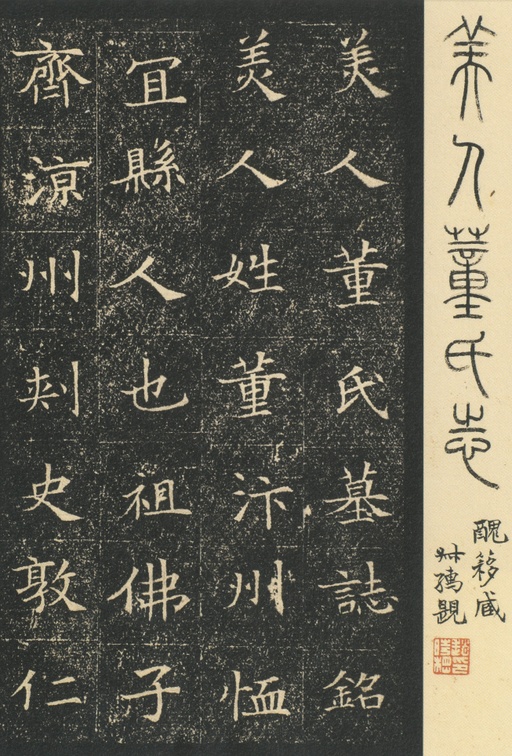 美人董氏志
醜簃藏
美人董氏墓誌銘
美人姓董汴州恤
冝縣人也祖佛子
齊涼州刾史敦仁